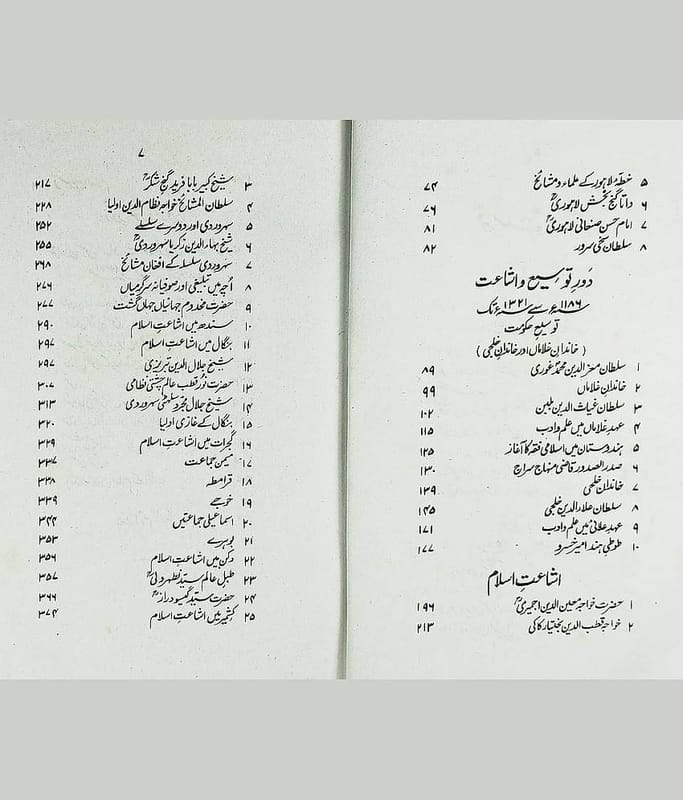 ۵ خطۂ لاہور کے علماء و مشائخ ۷۴
۶ داتا گنج بخش لاہوریؒ ۷۶
۷ امام حسن صنعانی لاہوریؒ ۸۱
۸ سلطان سخی سرور ۸۲
دَورِ توسیع و اشاعت
۱۱۸۶ء سے ۱۳۲۱ء تک
توسیعِ حکومت
(خاندانِ غلاماں اور خاندانِ خلجی)
۱ سلطان معز الدین محمد غوری ۸۹
۲ خاندانِ غلاماں ۹۹
۳ سلطان غیاث الدین بلبن ۱۰۲
۴ عہدِ غلاماں میں علم و ادب ۱۱۵
۵ ہندوستان میں اسلامی فقہ کا آغاز ۱۲۵
۶ صدر الصدور قاضی منہاج سراج ۱۳۰
۷ خاندانِ خلجی ۱۳۹
۸ سلطان علاء الدین خلجی ۱۴۵
۹ عہدِ علائی میں علم و ادب ۱۷۱
۱۰ طوطیِ ہند امیر خسرو ۱۷۷
اشاعتِ اسلام
۱ حضرت خواجہ معین الدین اجمیریؒ ۱۹۶
۲ خواجہ قطب الدین بختیار کاکی ۲۱۳
۷
۳ شیخ کبیر بابا فرید گنج شکرؒ ۲۱۷
۴ سلطان المشائخ خواجہ نظام الدین اولیا ۲۲۸
۵ سہروردی اور دوسرے سلسلے ۲۵۲
۶ شیخ بہاء الدین زکریا سہروردیؒ ۲۵۵
۷ سہروردی سلسلہ کے افغان مشائخ ۲۶۸
۸ اُچہ میں تبلیغی اور صوفیانہ سرگرمیاں ۲۷۶
۹ حضرت مخدوم جہانیاں جہاں گشت ۲۷۷
۱۰ سندھ میں اشاعتِ اسلام ۲۹۰
۱۱ بنگال میں اشاعتِ اسلام ۲۹۷
۱۲ شیخ جلال الدین تبریزی ۲۹۷
۱۳ حضرت نور قطب عالم چشتی نظامی ۳۰۷
۱۴ شیخ جلال مجرد سلہٹی سہروردی ۳۱۳
۱۵ بنگال کے غازی اولیا ۳۲۰
۱۶ گجرات میں اشاعتِ اسلام ۳۲۹
۱۷ میمن جماعت ۳۳۷
۱۸ قرامطہ ۳۳۸
۱۹ خوجے ۳۳۹
۲۰ اسماعیلی جماعتیں ۳۴۴
۲۱ بوہرے ۳۵۳
۲۲ دکن میں اشاعتِ اسلام ۳۵۶
۲۳ طبل عالم سید نطہر ولیؒ ۳۵۷
۲۴ حضرت سید گیسو درازؒ ۳۶۶
۲۵ کشمیر میں اشاعتِ اسلام ۳۷۴